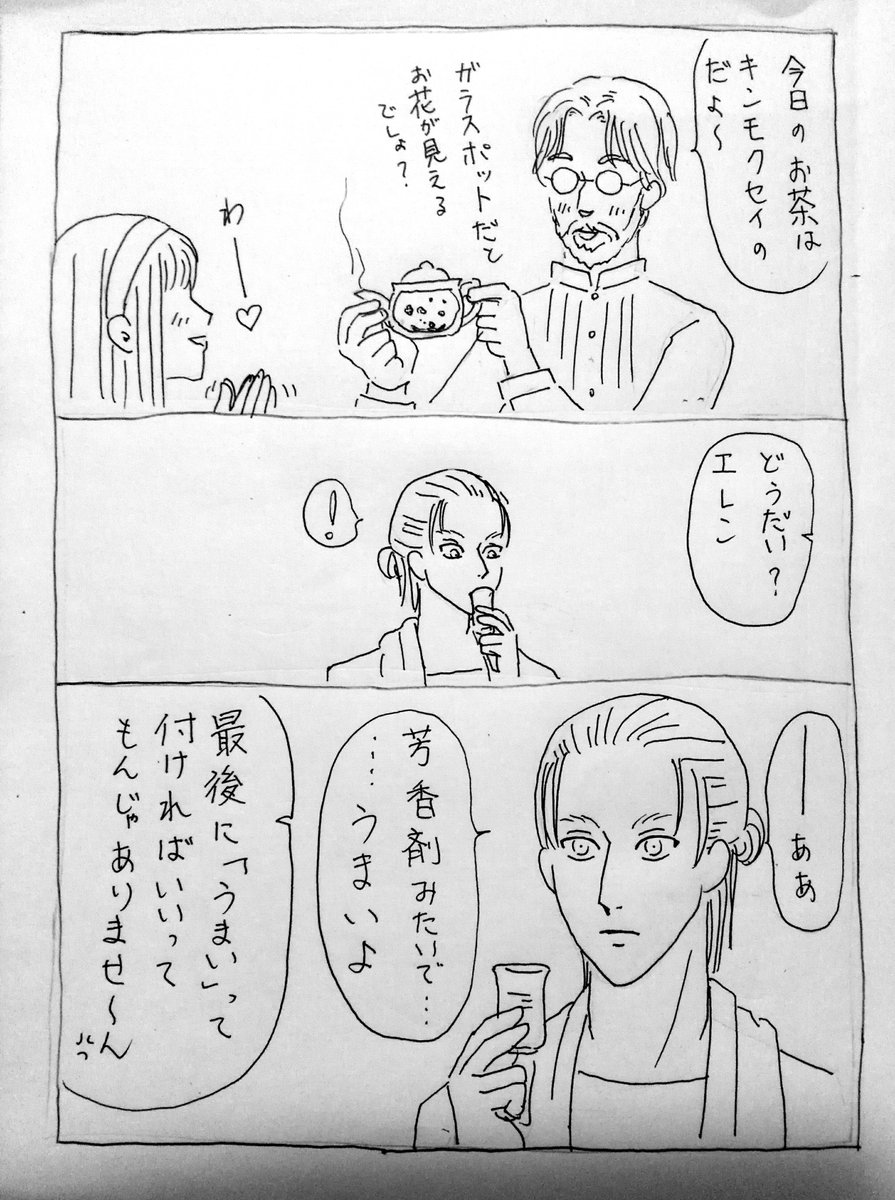 今日のお茶は
キンモクセイの
だよ〜
ガラスポットだと
お花が見える
でしょ？
わー♡
どうだい？
エレン
！
ーああ
芳香剤みたいで…
…うまいよ
最後に「うまい」って
付ければいいって
もんじゃありませ〜ん